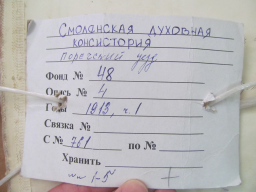 Смоленская духовная
консистория
поречский уезд
Фонд № 48
Опись № 4
Года 1913, ч.1
Связка №
С № 781 по №
Хранить